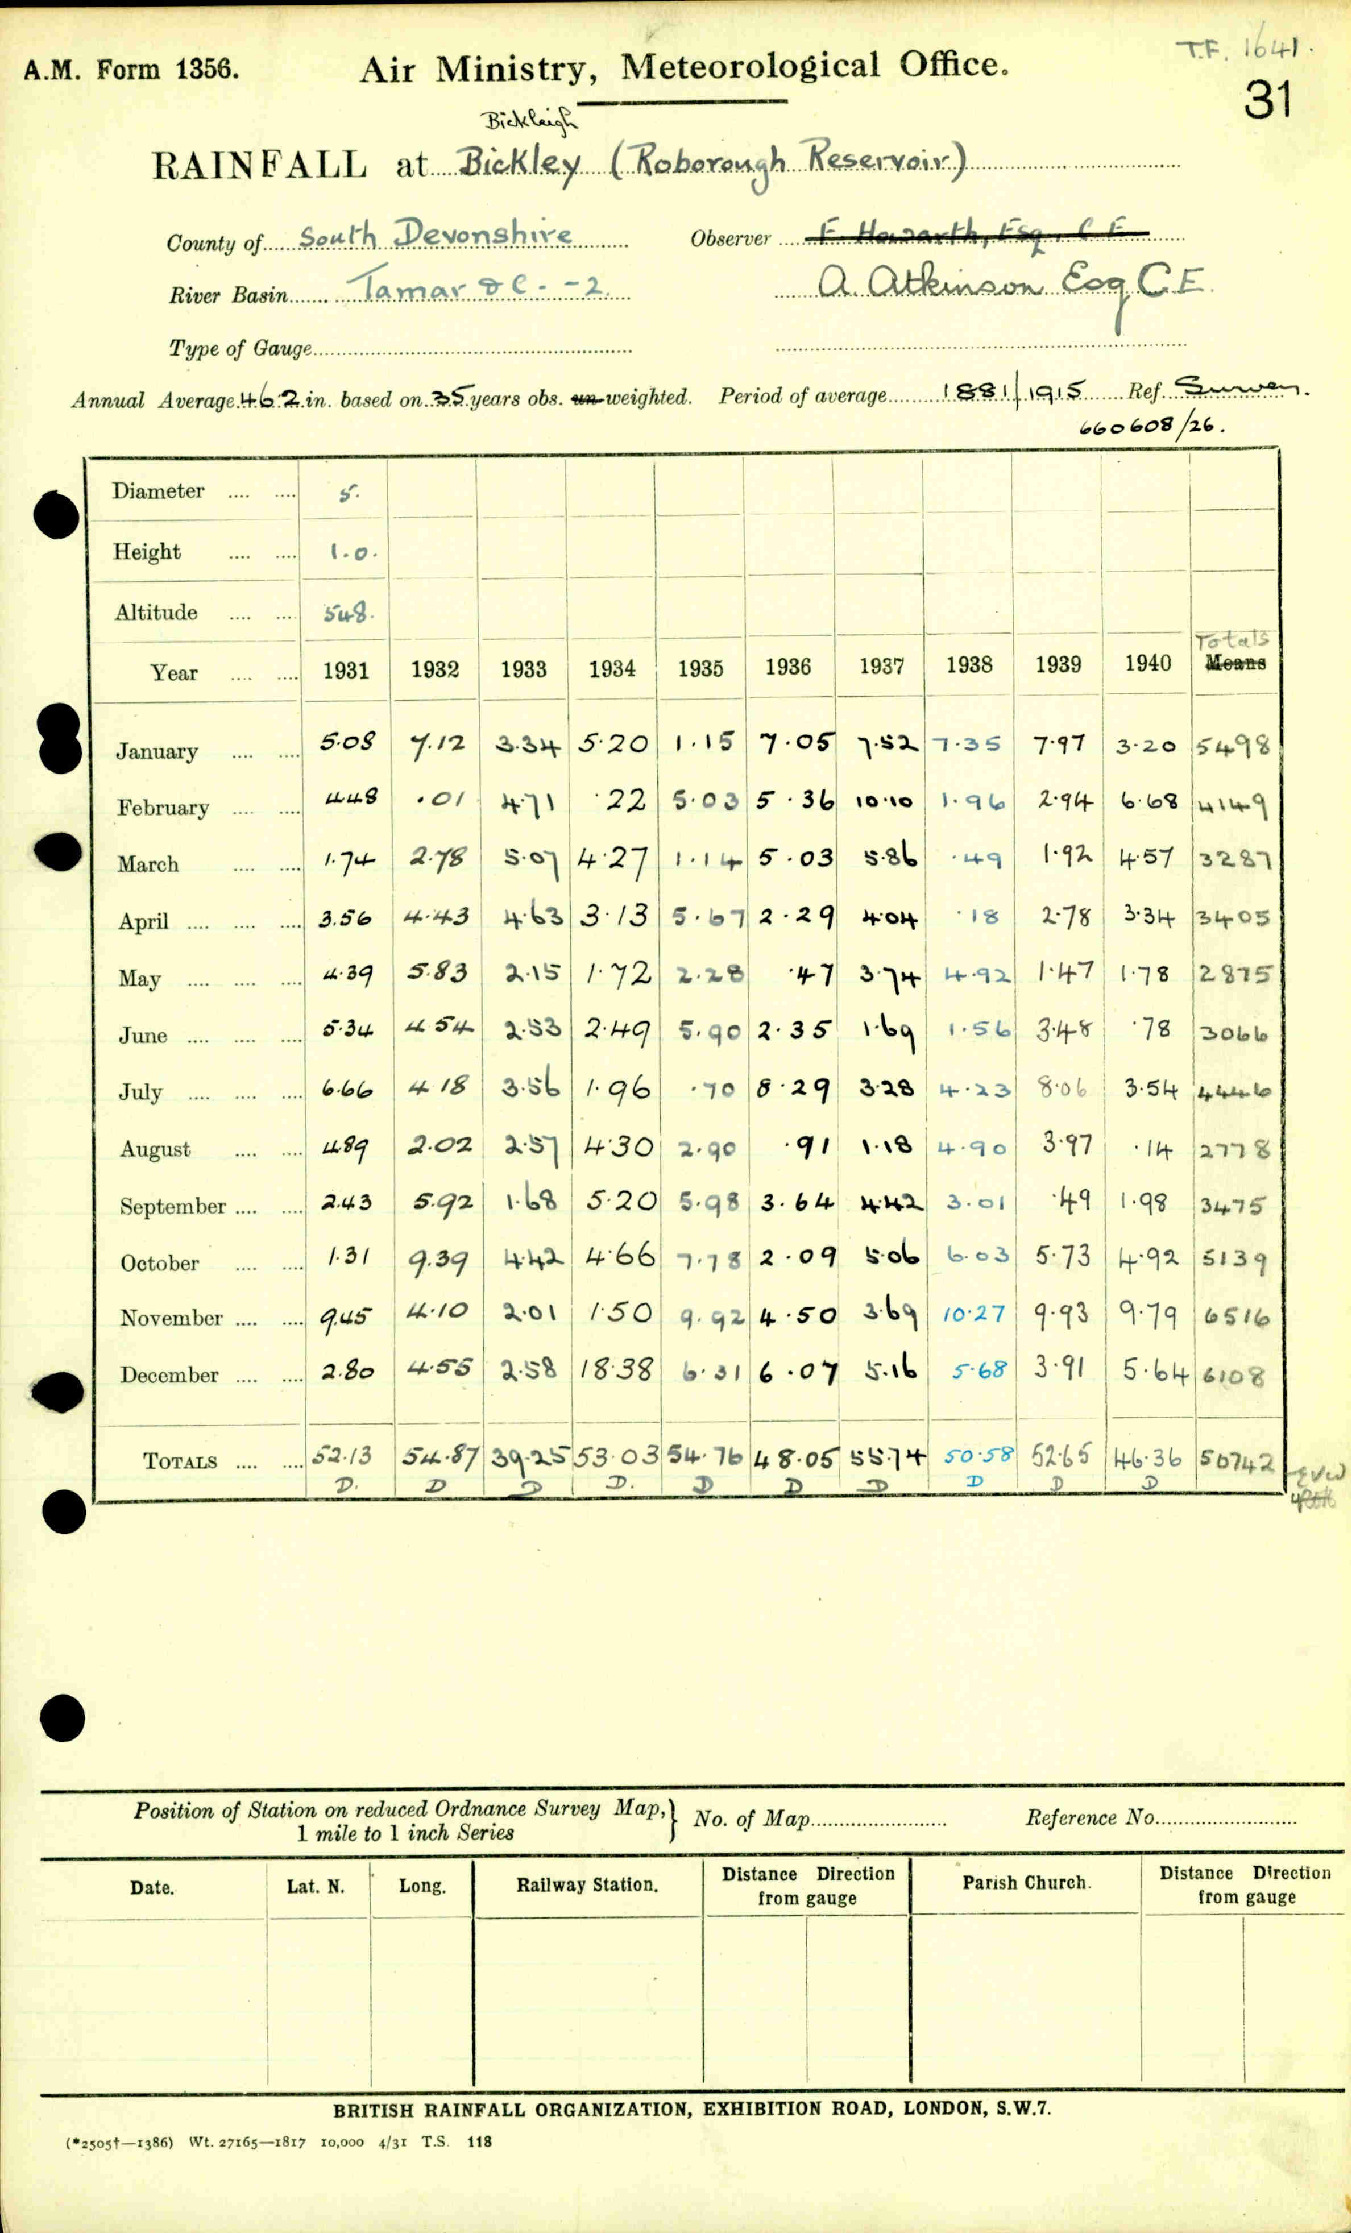 T.F. 1641.
A.M. Form 1356. Air Ministry, Meteorological Office.
31
Bickleigh
RAINFALL at Bickley (Roborough Reservoir)
County of South Devonshire Observer F Howarth, Esq. C E
River Basin Tamar &c. -2. A. Atkinson Esq C E.
Type of Gauge
Annual Average 46.2 in. based on 35 years obs. un-weighted. Period of average 1881/1915 Ref. Survey.
660608/26.
Diameter 5.
Height 1.0.
Altitude 548.
Totals
Year 1931 1932 1933 1934 1935 1936 1937 1938 1939 1940 Means
January 5.08 7.12 3.34 5.20 1.15 7.05 7.52 7.35 7.97 3.20 5498
February 4.48 .01 4.71 .22 5.03 5.36 10.10 1.96 2.94 6.68 4149
March 1.74 2.78 5.07 4.27 1.14 5.03 5.86 .49 1.92 4.57 3287
April 3.56 4.43 4.63 3.13 5.67 2.29 4.04 .18 2.78 3.34 3405
May 4.39 5.83 2.15 1.72 2.28 .47 3.74 4.92 1.47 1.78 2875
June 5.34 4.54 2.53 2.49 5.90 2.35 1.69 1.56 3.48 .78 3066
July 6.66 4.18 3.56 1.96 .70 8.29 3.28 4.23 8.06 3.54 4446
August 4.89 2.02 2.57 4.30 2.90 .91 1.18 4.90 3.97 .14 2778
September 2.43 5.92 1.68 5.20 5.98 3.64 4.42 3.01 .49 1.98 3475
October 1.31 9.39 4.42 4.66 7.78 2.09 5.06 6.03 5.73 4.92 5139
November 9.45 4.10 2.01 1.50 9.92 4.50 3.69 10.27 9.93 9.79 6516
December 2.80 4.55 2.58 18.38 6.31 6.07 5.16 5.68 3.91 5.64 6108
TOTALS 52.13 54.87 39.25 53.03 54.76 48.05 55.74 50.58 52.65 46.36 50742
D. D D D. D D D D D D
Position of Station on reduced Ordnance Survey Map, 1 mile to 1 inch Series } No. of Map Reference No.
Date. Lat. N. Long. Railway Station. Distance Direction from gauge Parish Church. Distance Direction from gauge
BRITISH RAINFALL ORGANIZATION, EXHIBITION ROAD, LONDON, S.W.7.
(*2505†—1386) Wt. 27165—1817 10,000 4/31 T.S. 118